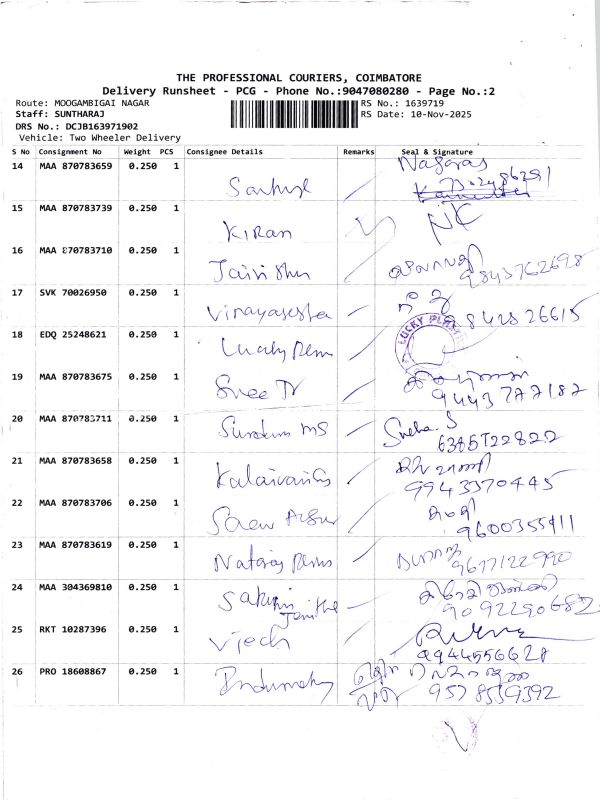 THE PROFESSIONAL COURIERS, COIMBATORE
Delivery Runsheet - PCG - Phone No.:9047080280 - Page No.:2
Route: MOOGAMBIGAI NAGAR RS No.: 1639719
Staff: SUNTHARAJ RS Date: 10-Nov-2025
DRS No.: DCJB163971902
Vehicle: Two Wheeler Delivery
S No Consignment No Weight PCS Consignee Details Remarks Seal & Signature
14 MAA 870783659 0.250 1 Nagaras
15 MAA 870783739 0.250 1 KIRAN NK
16 MAA 870783710 0.250 1 Jaivishu 9843762698
17 SVK 70026950 0.250 1 Vinayagestea 9842826615
18 EDQ 25248621 0.250 1 Lucky Plem LUCKY
19 MAA 870783675 0.250 1 Sree TV 9443777187
20 MAA 870783711 0.250 1 Sundum MS Sneha. S
6385722822
21 MAA 870783658 0.250 1 Kalaivani
9943370445
22 MAA 870783706 0.250 1 9600355911
23 MAA 870783619 0.250 1 Nataraj Plems 9677122990
24 MAA 304369810 0.250 1 Sakthi 9092290682
25 RKT 10287396 0.250 1 Vjech
9944556628
26 PRO 18608867 0.250 1 Indumathy 9578559392